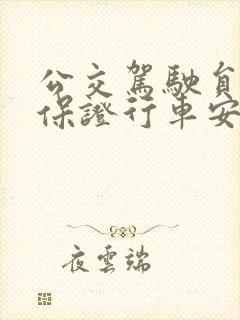 公交駕駛員
保證行車安
夜雲端